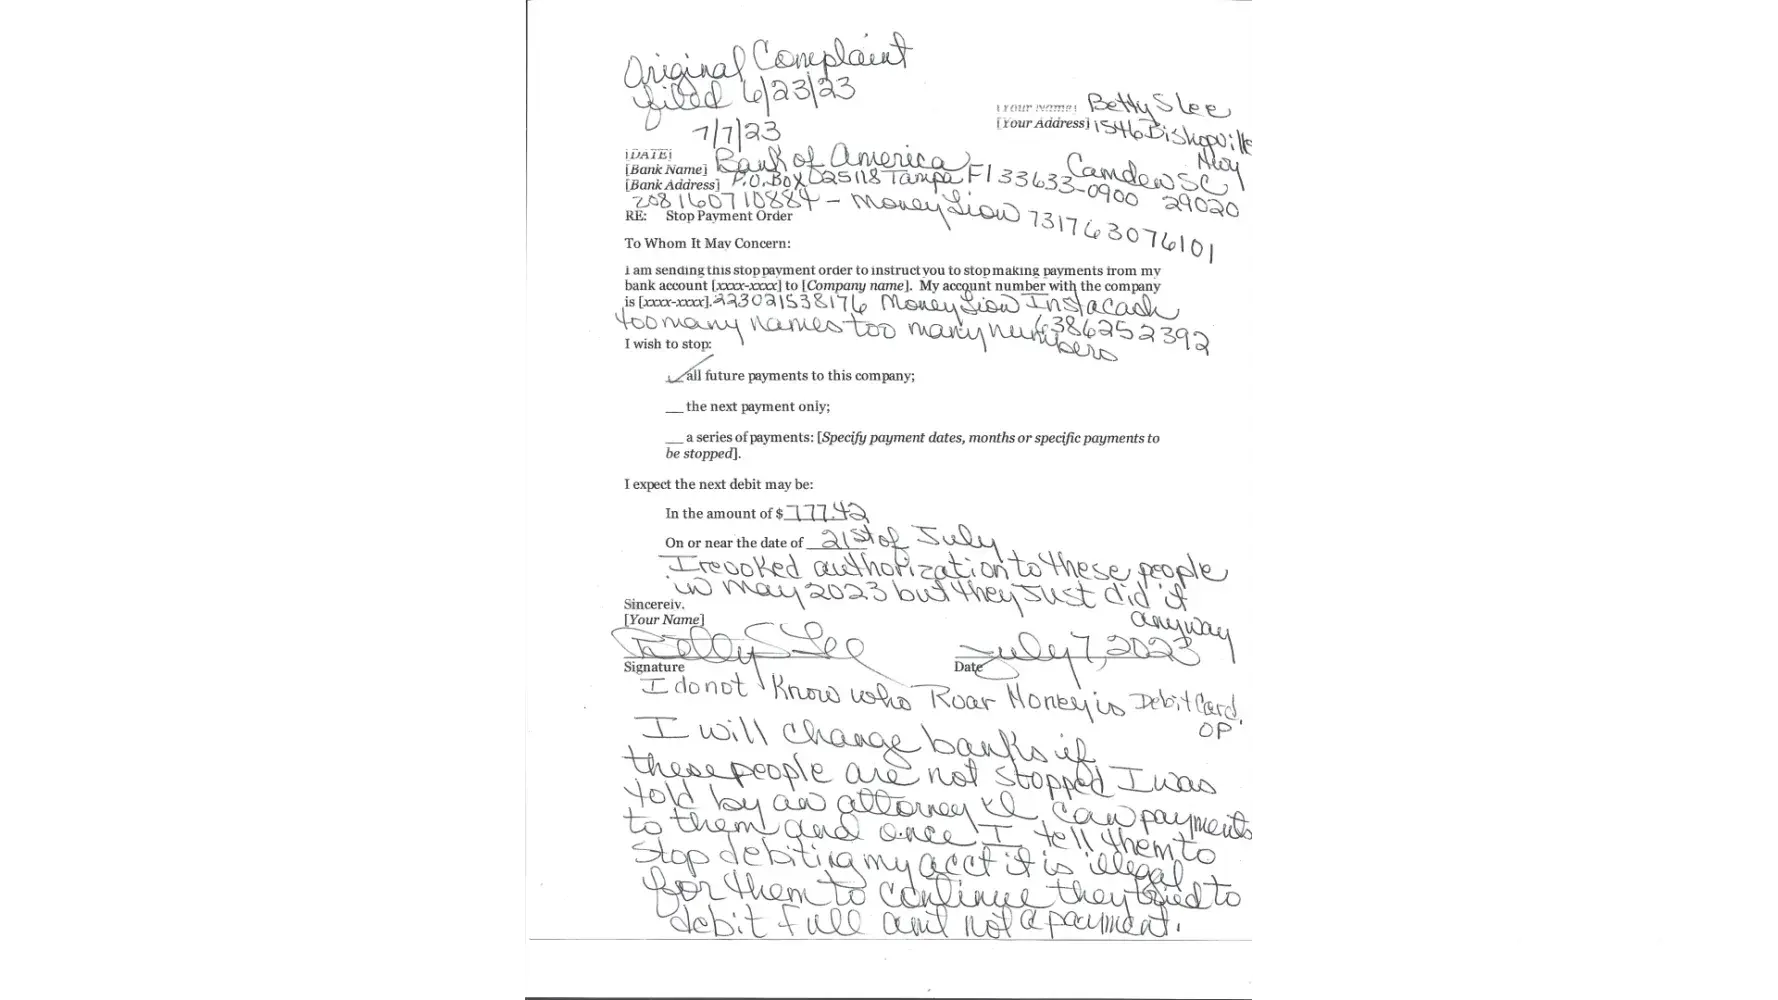 Original Complaint
filed 6/23/23
[Your Name] Betty S Lee
[Your Address] 1546 Bishopville Hwy
7/7/23
Camden SC
29020
[DATE]
[Bank Name] Bank of America
[Bank Address] P.O. Box 025118 Tampa Fl 33633-0900
208160710884 - MoneyLion 731763076101
RE: Stop Payment Order
To Whom It May Concern:
I am sending this stop payment order to instruct you to stop making payments from my
bank account [xxxx-xxxx] to [Company name]. My account number with the company
is [xxxx-xxxx]. 223021538176 MoneyLion Instacash
too many names too many numbers 6386252392
I wish to stop:
✓ all future payments to this company;
__ the next payment only;
__ a series of payments: [Specify payment dates, months or specific payments to
be stopped].
I expect the next debit may be:
In the amount of $ 777.42
On or near the date of 21st of July
I revoked authorization to these people
in May 2023 but they just did it
anyway
Sincerely,
[Your Name]
Betty S Lee July 7, 2023
Signature Date
I do not know who Roar Money is Debit Card.
OP
I will change banks if
these people are not stopped I was
told by an attorney I can payments
to them and once I tell them to
stop debiting my acct it is illegal
for them to continue they tried to
debit full amt not a payment.